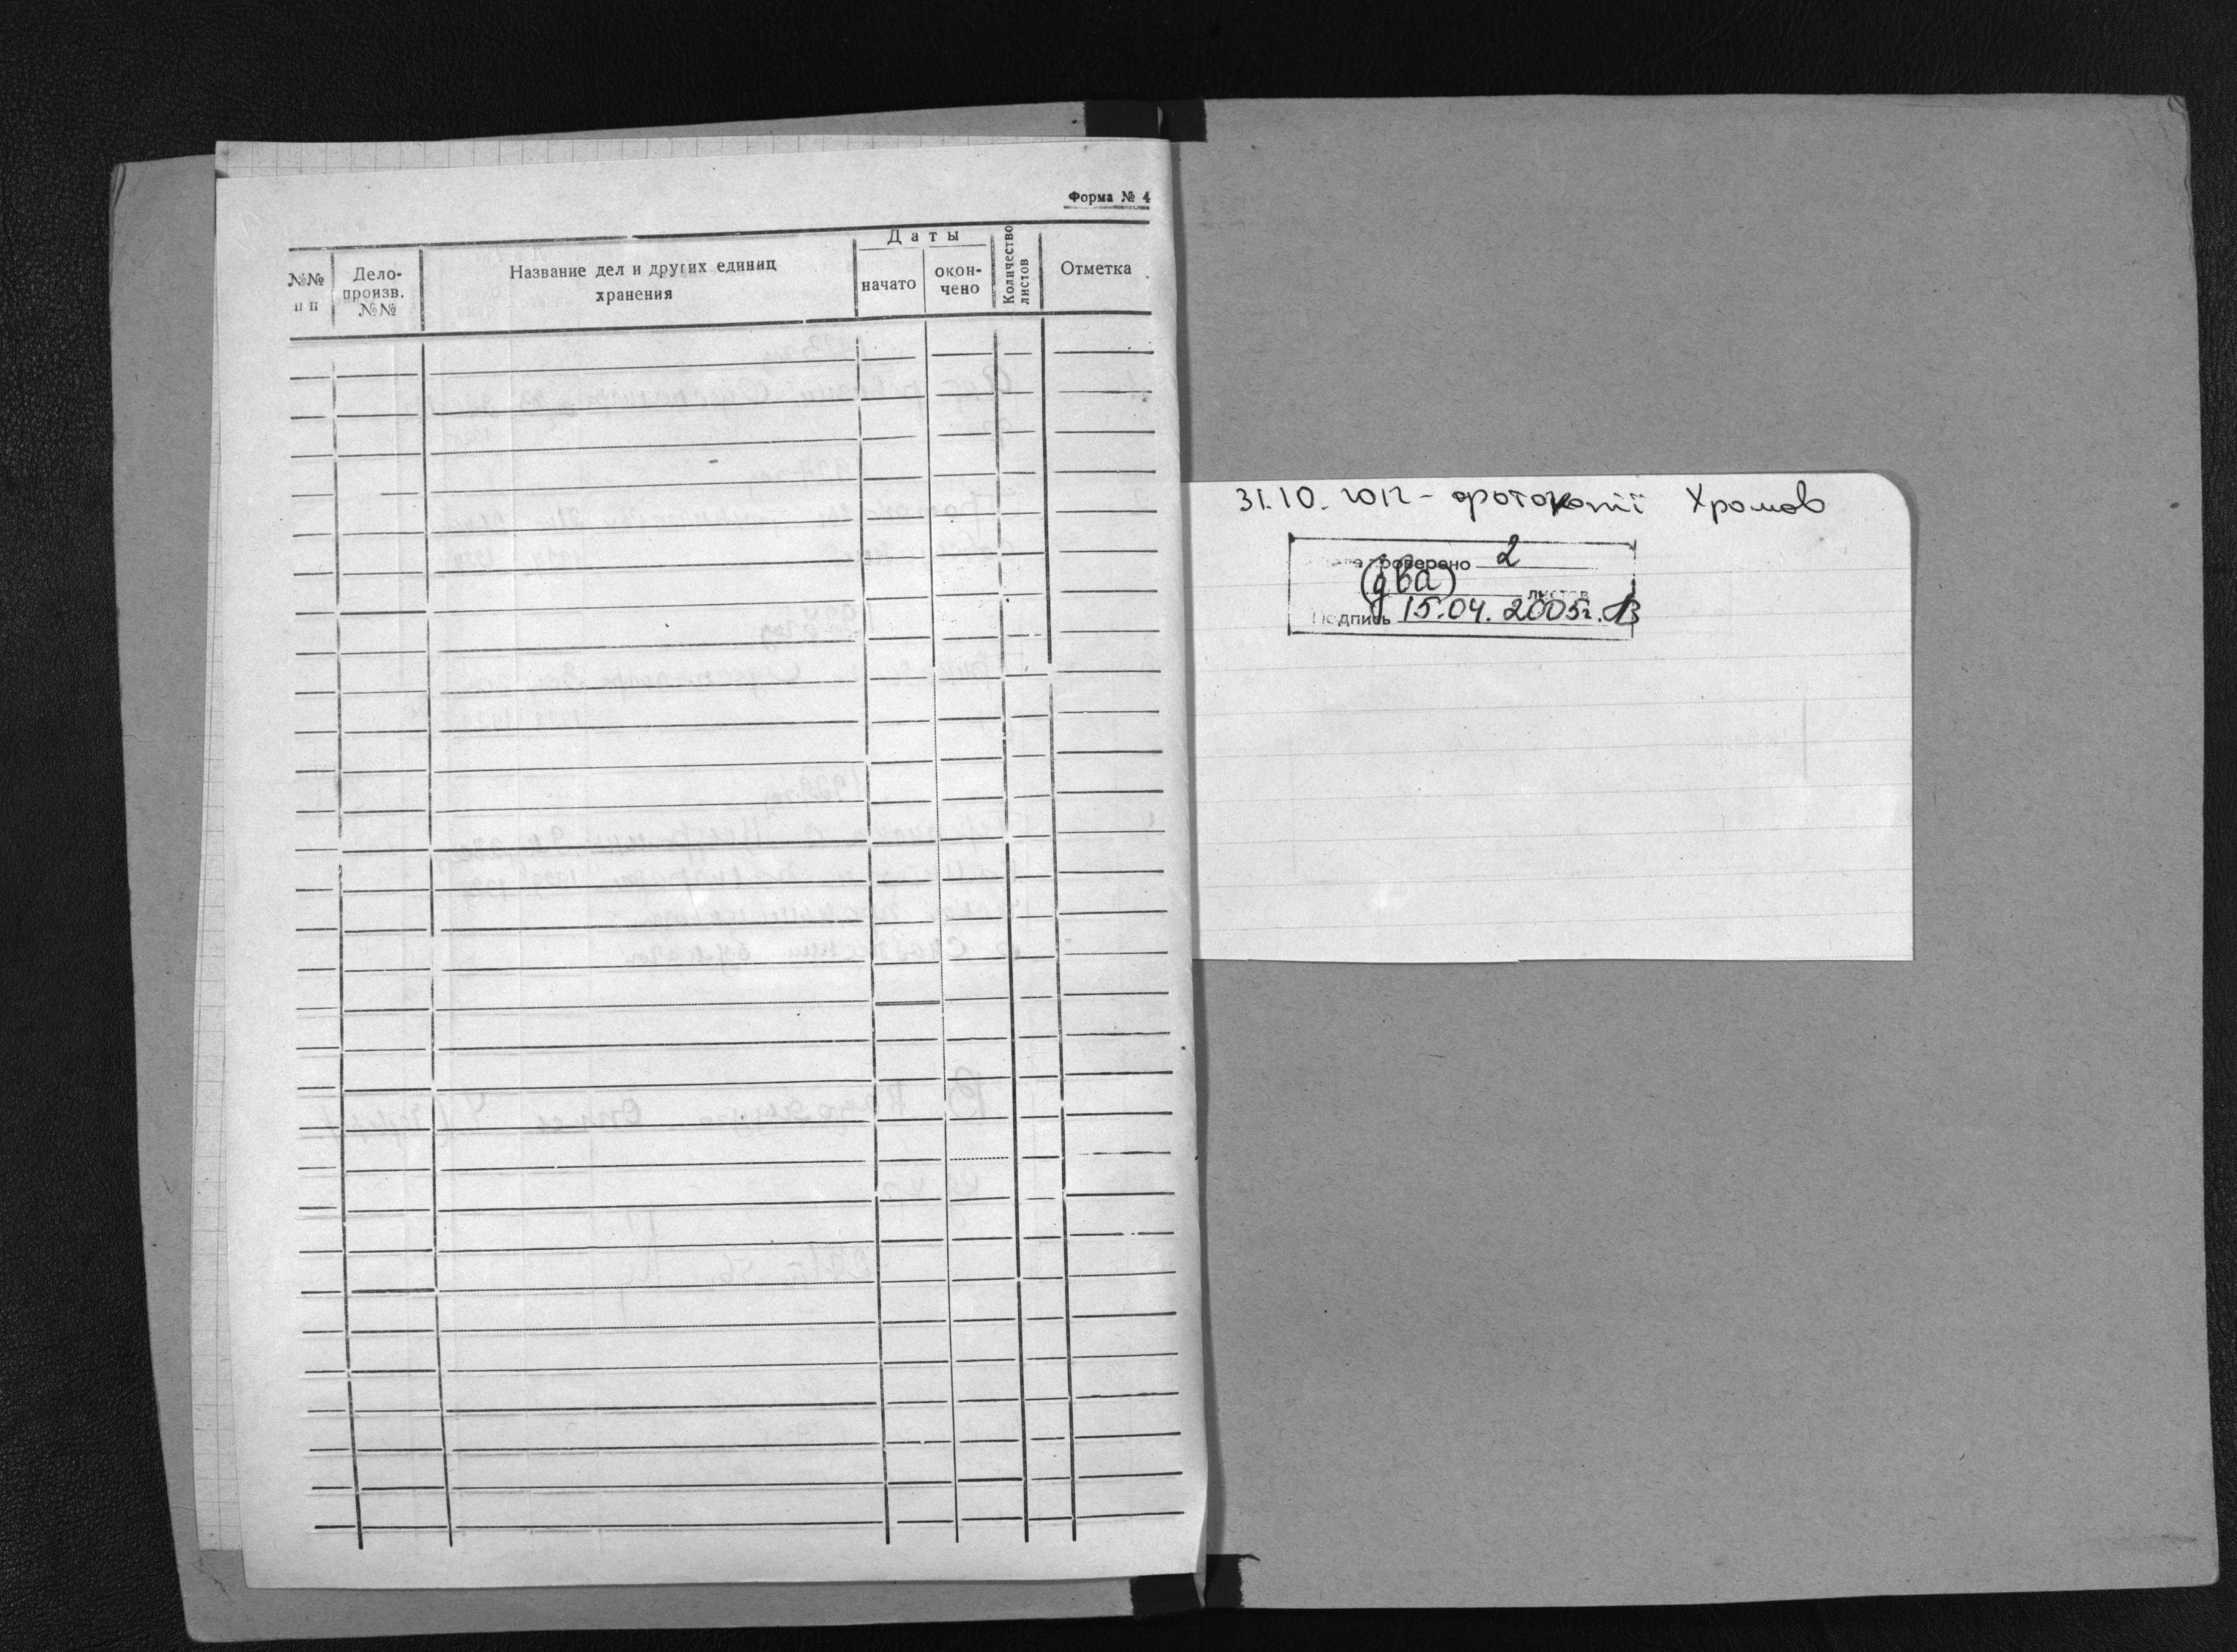 Форма № 4
№№ п п
Дело-
произв.
№№
Название дел и других единиц
хранения
Даты
начато
окон-
чено
Количество
листов
Отметка
31.10.2012 - фотокопії Хромов
проверено 2
(два) листов
Подпись 15.04.2005г.